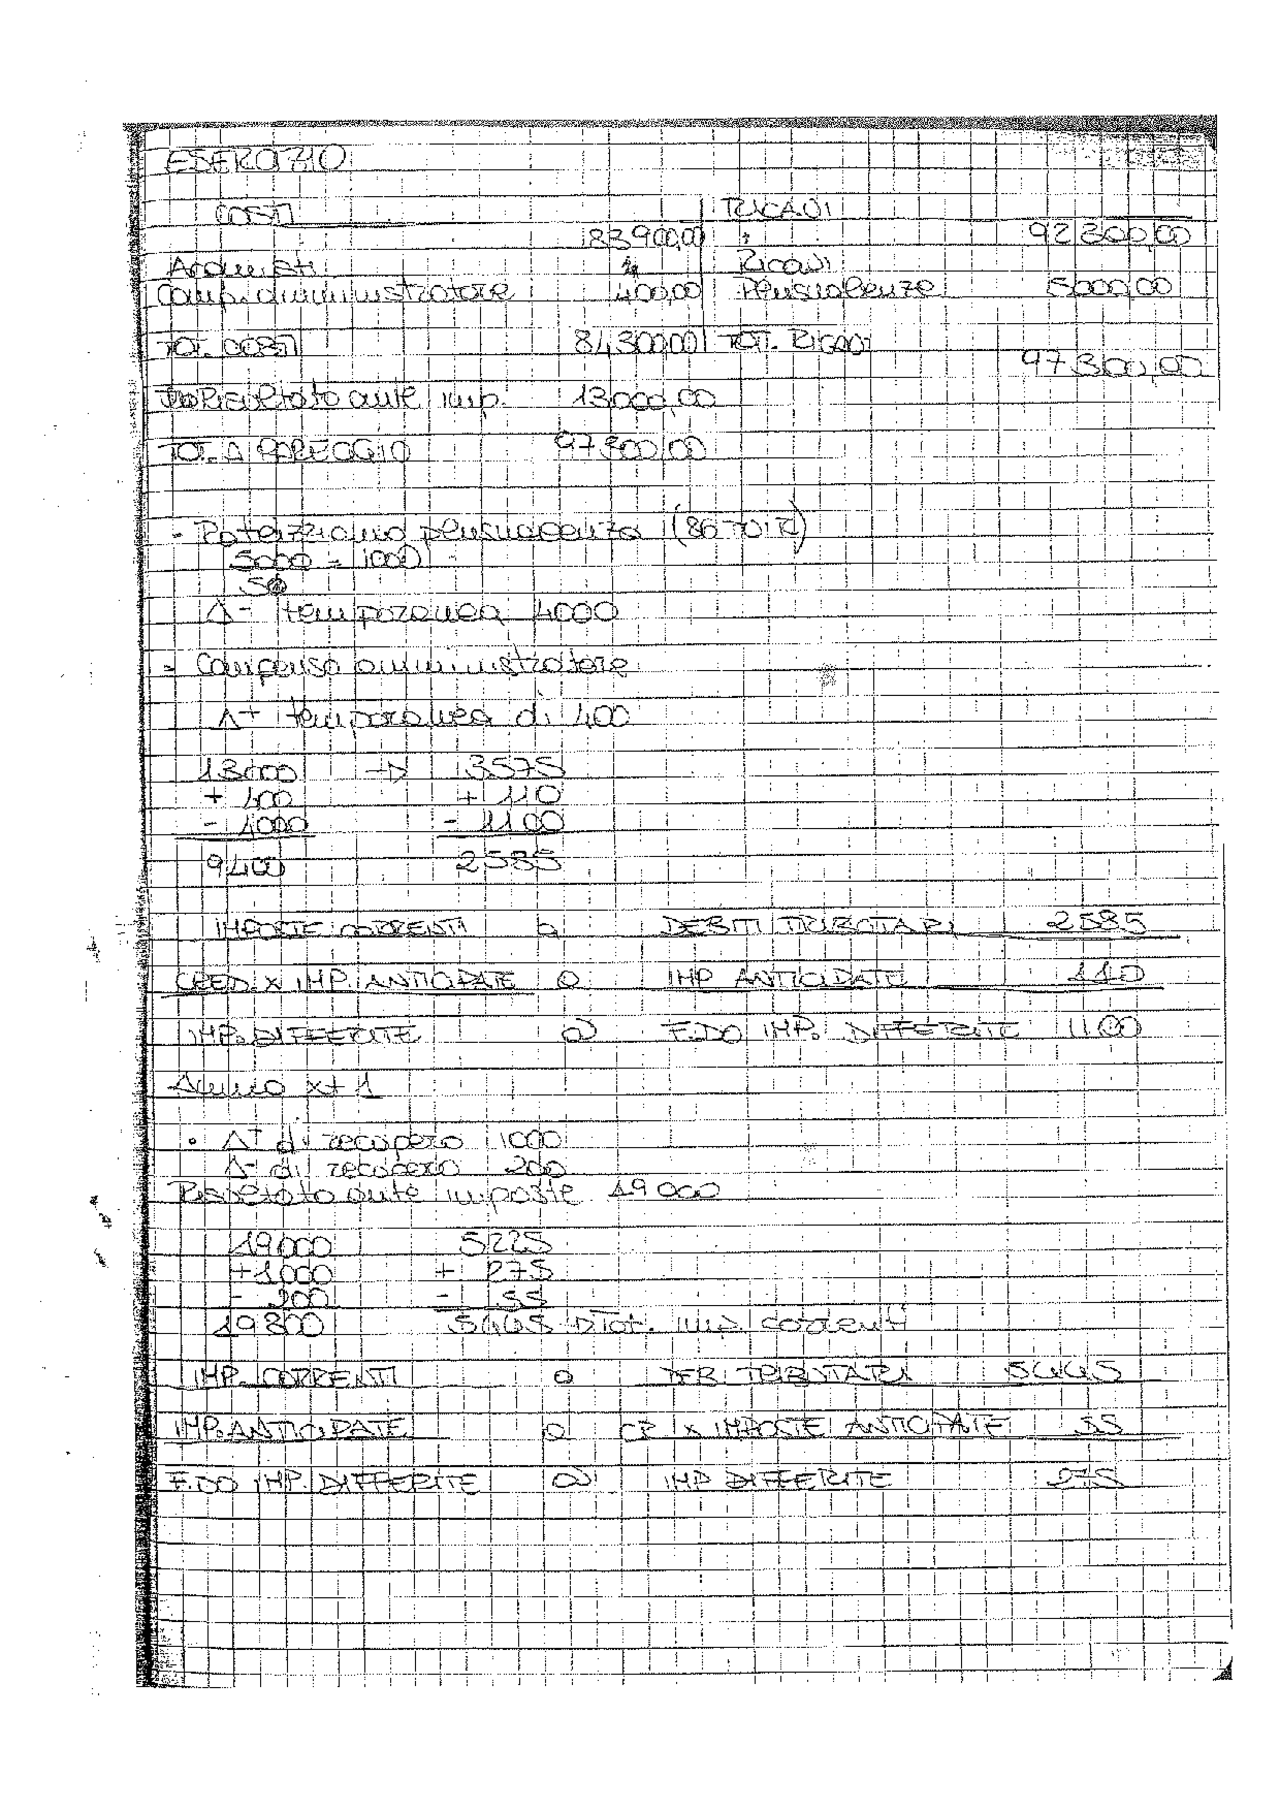 ESERCIZIO
COSTI RICAVI
Acquisti 83900,00 Ricavi 92300,00
Comp. amministratore 400,00 Plusvalenze 5000,00
TOT. COSTI 84300,00 TOT. RICAVI 97300,00
Risultato ante imp. 13000,00
TOT. A PAREGGIO 97300,00
- Rateizziamo plusvalenza (86 TUIR)
5000 = 1000
5
Δ- temporanea 4000
- Compenso amministratore
Δ+ temporanea di 400
13000 → 3575
+ 400 + 110
- 4000 - 1100
9400 2585
IMPOSTE CORRENTI a DEBITI TRIBUTARI 2585
CRED. X IMP. ANTICIPATE a IMP ANTICIPATE 110
IMP. DIFFERITE a F.DO IMP. DIFFERITE 1100
Anno x+1
• Δ+ di recupero 1000
Δ- di recupero 200
Risultato ante imposte 19000
19000 5225
+1000 + 275
- 200 - 55
19800 5445 → Tot. imp. correnti
IMP. CORRENTI a DEB. TRIBUTARI 5445
IMP. ANTICIPATE a CR X IMPOSTE ANTICIPATE 55
F.DO IMP. DIFFERITE a IMP DIFFERITE 275